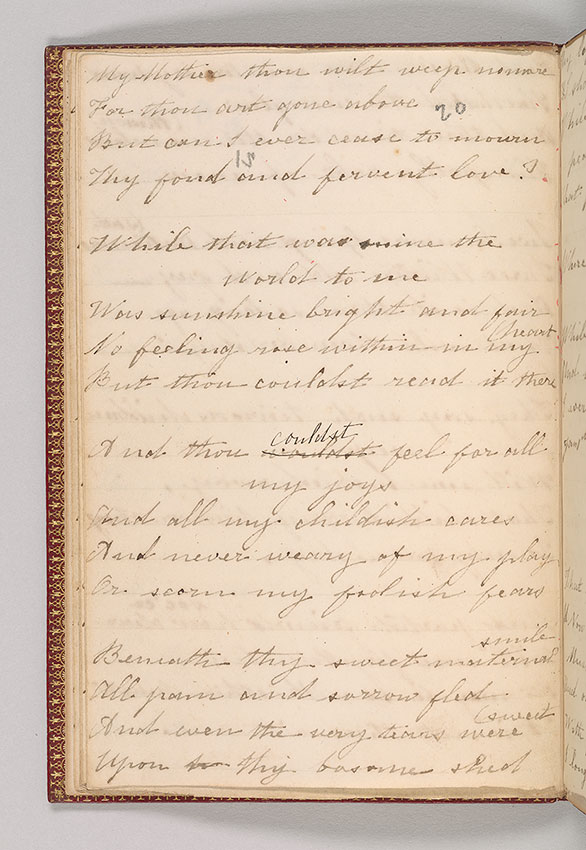 My Mother thou wilt weep nomore
For thou art gone above
20
But can I ever cease to mourn
15
Thy fond and fervent love?
While that was mine the
world to me
Was sunshine bright and fair
No feeling rose within in my
(heart
But thou couldst read it there
couldst
And thou couldst feel for all
my joys
And all my childish cares
And never weary of my play
Or scorn my foolish fears
smile
Beneath thy sweet maternal
All pain and sorrow fled
(sweet
And even the very tears were
Upon thy bosome shed